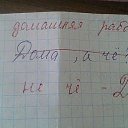 домашняя рабо
Дома, а чё?
не чё - Д